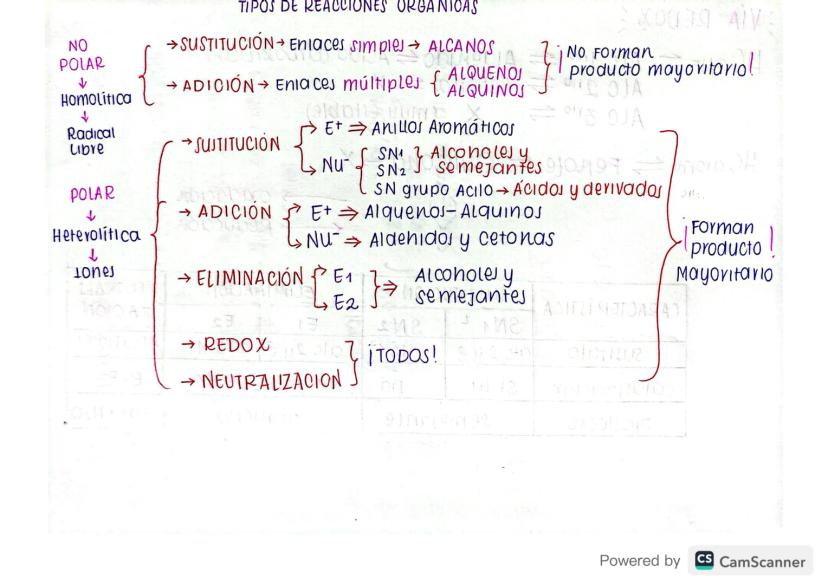 TIPOS DE REACCIONES ORGANICAS
NO POLAR
↓
Homolítica
↓
Radical Libre
→ SUSTITUCIÓN → Enlaces simples → ALCANOS
→ ADICIÓN → Enlaces múltiples { ALQUENOS
ALQUINOS
¡No Forman producto mayoritario!
POLAR
↓
Heterolítica
↓
Iones
→ SUSTITUCIÓN
E+ ⇒ Anillos Aromáticos
Nu-
SN1
SN2
Alcoholes y semejantes
SN grupo Acilo → Ácidos y derivados
→ ADICIÓN
E+ ⇒ Alquenos-Alquinos
Nu- ⇒ Aldehidos y cetonas
→ ELIMINACIÓN
E1
E2
⇒ Alcoholes y semejantes
→ REDOX
→ NEUTRALIZACION
¡TODOS!
¡Forman producto Mayoritario!
Powered by CS CamScanner